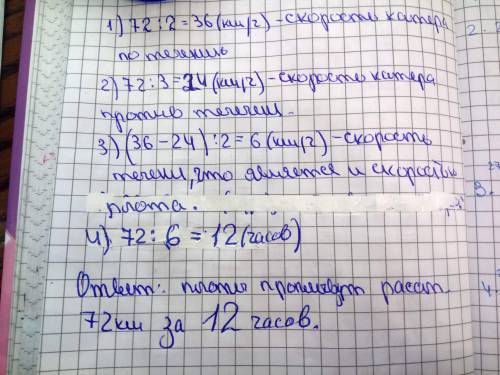 1) 72 : 2 = 36 (км/г) - скорость катера
по течению
2) 72 : 3 = 24 (км/г) - скорость катера
против течения.
3) (36 - 24) : 2 = 6 (км/г) - скорость
течения, что является и скоростью
плота.
4) 72 : 6 = 12 (часов)
Ответ: плот проплывут расст.
72км за 12 часов.